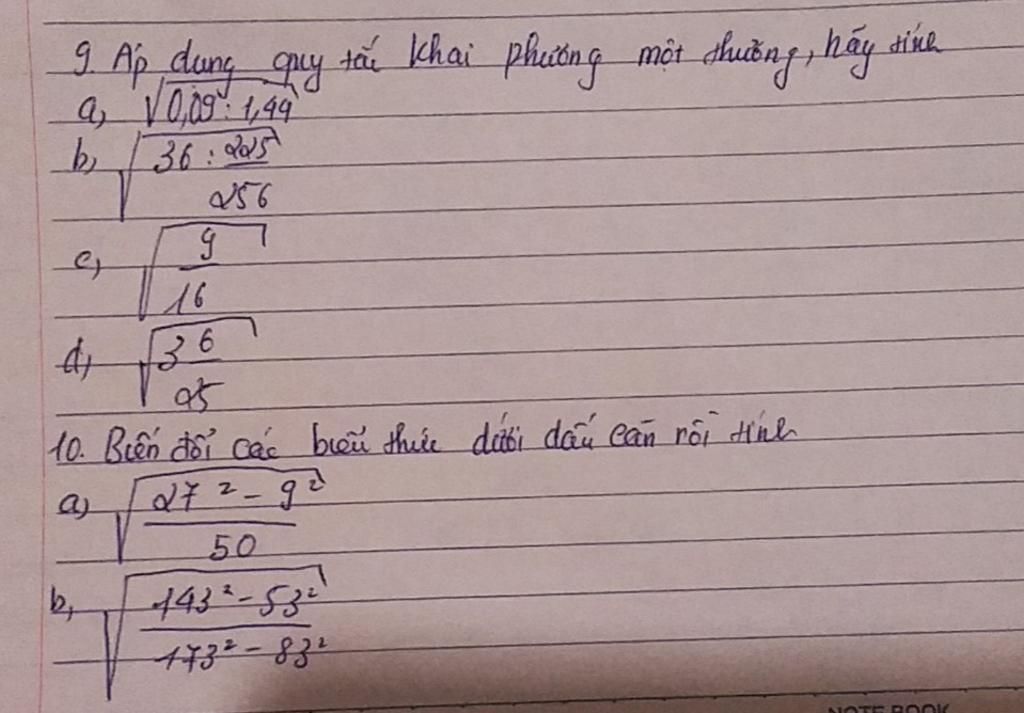 9. Áp dụng quy tắc khai phương một thương, hãy tính
a, √0,09 : 1,44
b, √36 : 225/256
c, √9/16
d, √36/25
10. Biến đổi các biểu thức dưới dấu căn rồi tính
a) √(27² - 9²)/50
b, √(143² - 53²)/(173² - 83²)
NOTE BOOK